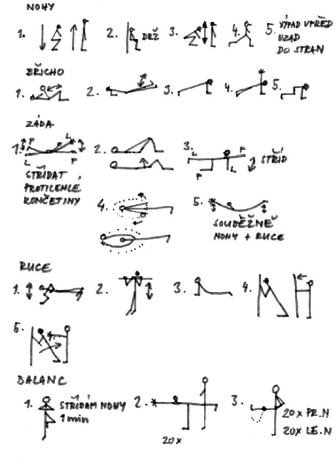 NOHY
1. 2. DRŽ 3. 4. 5. VÝPAD VPŘED
VZAD
DO STRAN
BŘICHO
1. 2. 3. 4. 5.
ZÁDA
1. P L L P 2. 3. L P P L STŘÍD
STŘÍDAT
PROTILEHLÉ
KONČETINY
4. 5.
SOUBĚŽNĚ
NOHY + RUCE
RUCE
1. 2. 3. 4.
5.
BALANC
1. STŘÍDÁM NOHY
1 min
2. 20x
3. 20x PR.N
20x LE.N